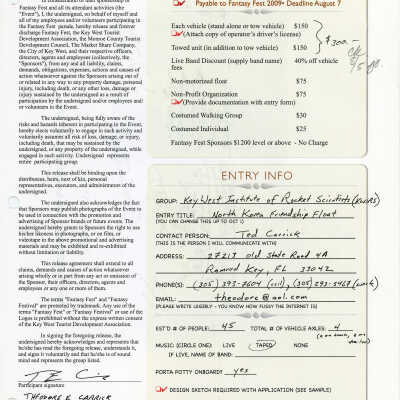 Fest") and all its attendant activities (the
"Event"), I, the undersigned, on behalf of myself and
all of my employees and/or volunteers participating in
the Fantasy Fest parade, hereby release and forever
discharge Fantasy Fest, the Key West Tourist
Development Association, the Monroe County Tourist
Development Council, The Market Share Company,
the City of Key West, and their respective officers,
directors, agents and employees (collectively, the
"Sponsors"), from any and all liability, claims,
demands, obligations, expenses, actions and causes of
action whatsoever against the Sponsors arising out of
or related in any way to any property damage, personal
injury, including death, or any other loss, damage or
injury sustained by the undersigned as a result of
participation by the undersigned and/or employees and/
or volunteers in the Event.
The undersigned, being fully aware of the
risks and hazards inherent in participating in the Event,
hereby elects voluntarily to engage in such activity and
voluntarily assumes all risk of loss, damage, or injury,
including death, that may be sustained by the
undersigned, or any property of the undersigned, while
engaged in such activity. Undersigned represents
entire participating group.
This release shall be binding upon the
distributees, heirs, next of kin, personal
representatives, executors, and administration of the
undersigned.
The undersigned also acknowledges the fact
that Sponsors may publish photographs of the Event to
be used in connection with the promotion and
advertising of Sponsor brands or future events. The
undersigned hereby grants to Sponsors the right to use
his/her likeness in photographs, or on film, or
videotape in the above promotional and advertising
materials and may be exhibited and re-exhibited
without limitation or liability.
This release agreement shall extend to all
claims, demands and causes of action whatsoever
arising wholly or in part from any act or omission of
the Sponsor, their officers, directors, agents and
employees or any one or more of them.
The terms "Fantasy Fest" and "Fantasy
Festival" are protected by trademark. Any use of the
terms "Fantasy Fest" or "Fantasy Festival" or use of the
Logos is prohibited without the express written consent
of the Key West Tourist Development Association.
In signing the foregoing release, the
undersigned hereby acknowledges and represents that
he/she has read the foregoing release, understands it,
and signs it voluntarily and that he/she is of sound
mind and represents the group listed.
Participant signature
THEODORE E. CARRICK
Payable to Fantasy Fest 2009• Deadline August 7
Each vehicle (stand alone or tow vehicle) $150
(Attach copy of operator's driver's license)
Towed unit (in addition to tow vehicle) $150
$300
Live Band Discount (supply band name) 40% off vehicle
fees
Non-motorized float $75
Non-Profit Organization $75
(Provide documentation with entry form)
Costumed Walking Group $30
Costumed Individual $25
Fantasy Fest Sponsors $1200 level or above - No Charge
ENTRY INFO
GROUP: Key West Institute of Rocket Scientists (KWIRS)
ENTRY TITLE: North Korea Friendship Float
(YOU CAN CHANGE THIS UP TO 1)
CONTACT PERSON: Ted Carrick
(THIS IS THE PERSON I WILL COMMUNICATE WITH)
ADDRESS: 27217 Old State Road 4A
Ramrod Key, FL 33042
PHONE(S): (305) 393-2604 (cell), (305) 293-2468 (work)
EMAIL: theodore@aol.com
(PLEASE WRITE LEGIBLY - YOU KNOW HOW FUSSY THE INTERNET IS)
EST'D # OF PEOPLE: 45 TOTAL # OF VEHICLE AXLES: 4
MUSIC (CIRCLE ONE) LIVE TAPED NONE
IF LIVE, NAME OF BAND:
PORTA POTTY ONBOARD? yes
DESIGN SKETCH REQUIRED WITH APPLICATION (SEE SAMPLE)